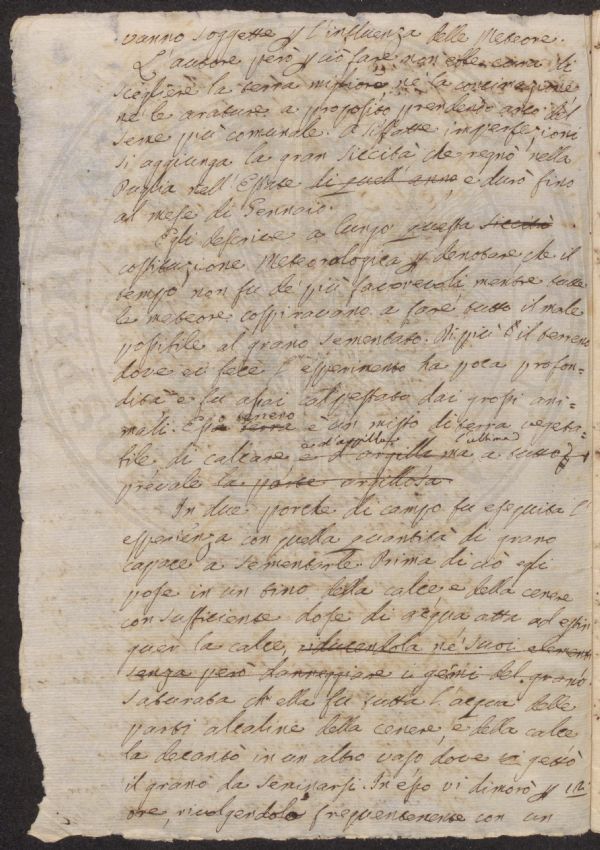 vanno soggette p l'influenza delle Meteore.
L'autore però p ciò fare non ebbe cura di
scegliere la terra migliore, nè la concimazione
ne le arature a proposito prendendo anco del
seme più comunale. A siffatte imperfezioni
si aggiunga la gran siccità che regnò nella
Puglia nell'Estate di quell'anno e durò fino
al mese di Gennaio.
Egli descrive a lungo questa siccità
costituzione Meteorologica p denotare che il
tempo non fu de' più favorevoli mentre tutte
le meteore cospiravano a fare tutto il male
possibile al grano sementato. Di più il terreno
dove ei fece l'esperimento ha poca profon-
dità e fu assai calpestato dai grossi ani-
mali. Esso terreno terra è un misto di terra vegeta-
bile di calcare e d'argilla e d'argilla ma a tutto l'ultima
prevale la parte argillosa
In due porche di campo fu eseguita l'
esperienza con quella quantità di grano
capace a sementarle. Prima di ciò egli
pose in un tino della calce e della cenere
con sufficiente dose di acqua atta ad estin
guer la calce, riducendola ne' suoi elementi
senza però danneggiare i germi del grano
Saturata ch'ella fu tutta l'acqua delle
parti alcaline della cenere, e della calce
la decantò in un altro vaso dove vi gettò
il grano da seminarsi. In esso vi dimorò p
ore, rivolgendolo frequentemente con un